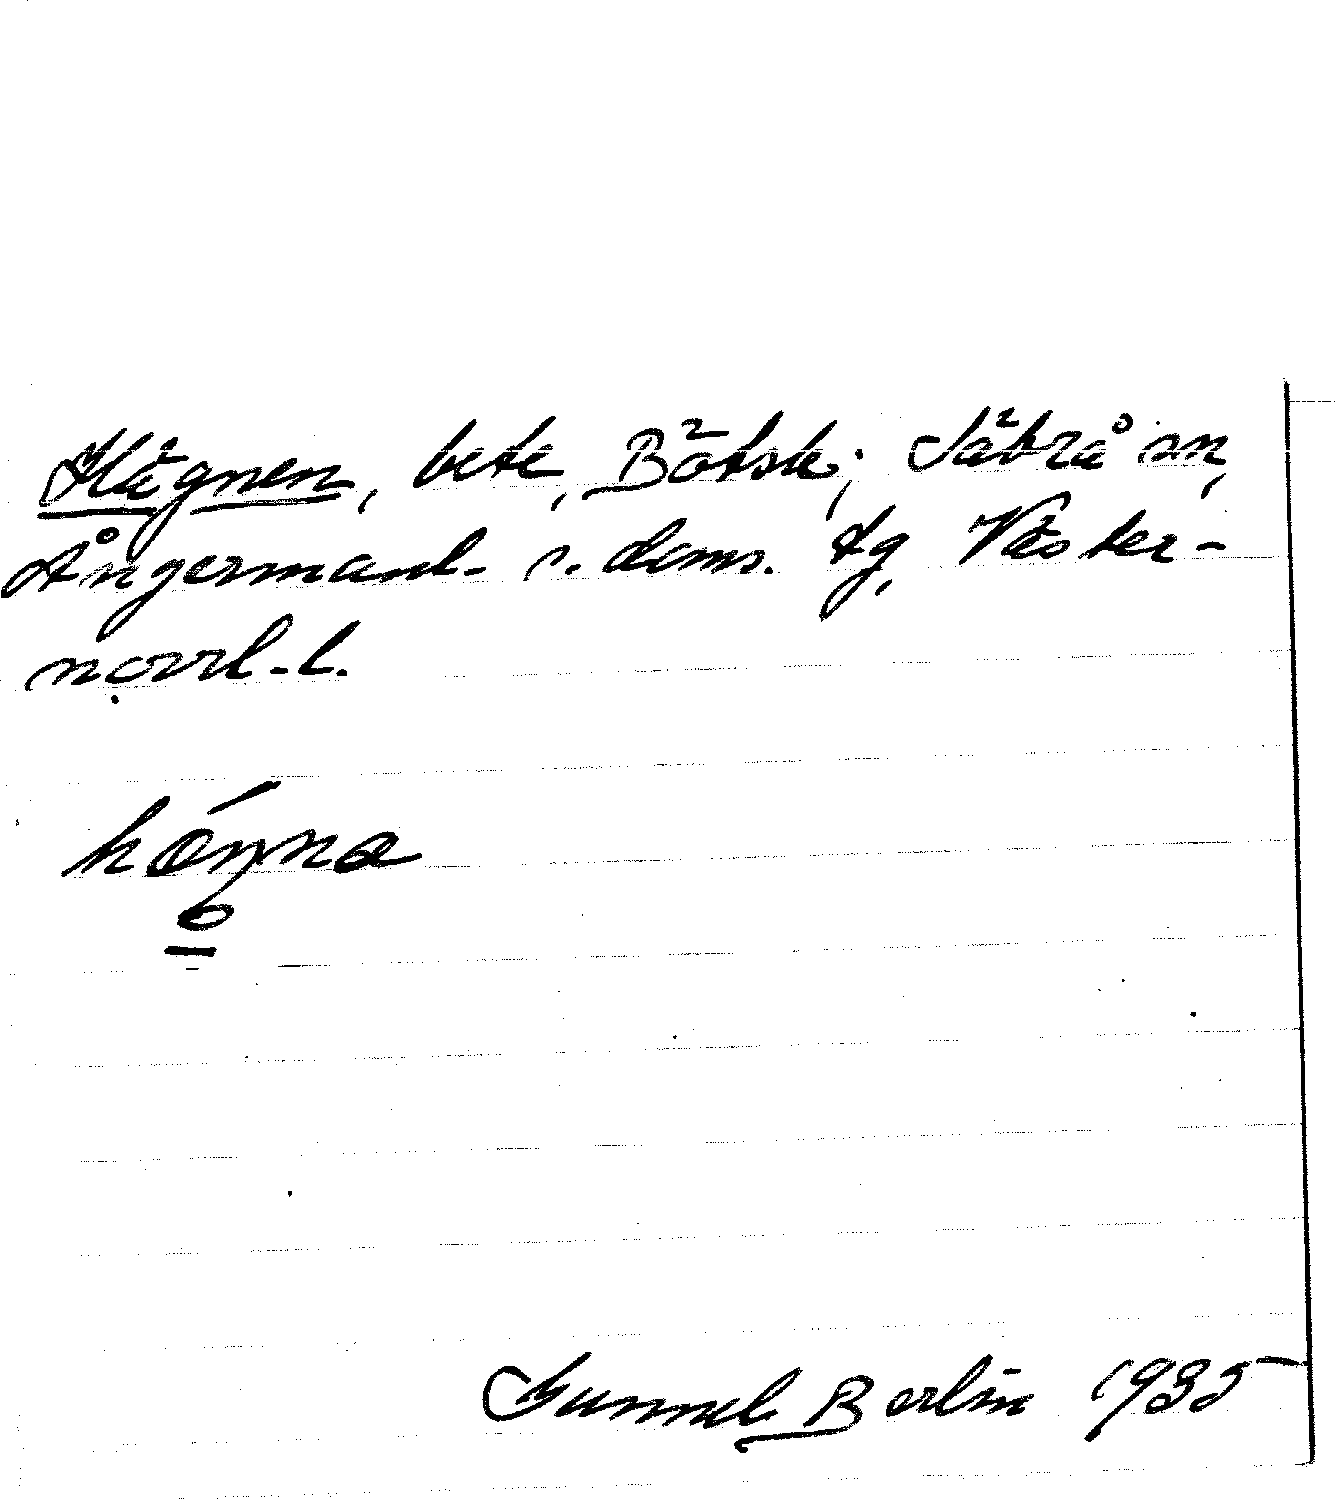 Hågnen, bete, Bölsle; Säbrå sn,
Ångermanl. s. doms. tg, Väster-
norrl. l.
Gunnel Berlin 1935